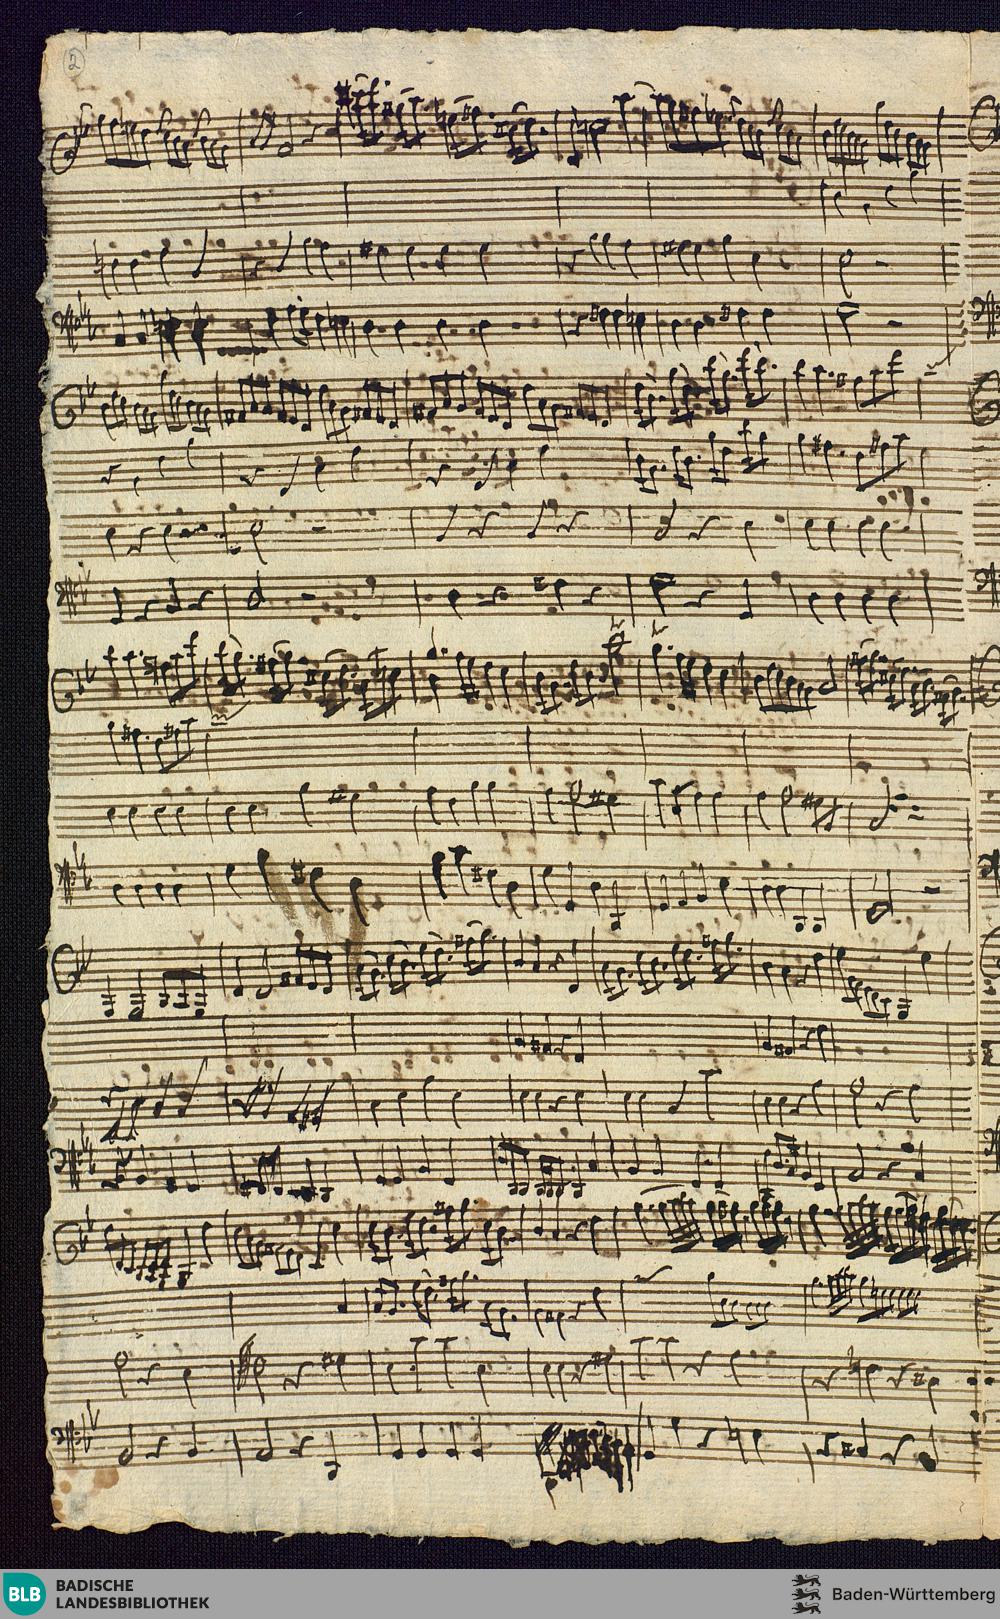 2
BLB
BADISCHE
LANDESBIBLIOTHEK
Baden-Württemberg